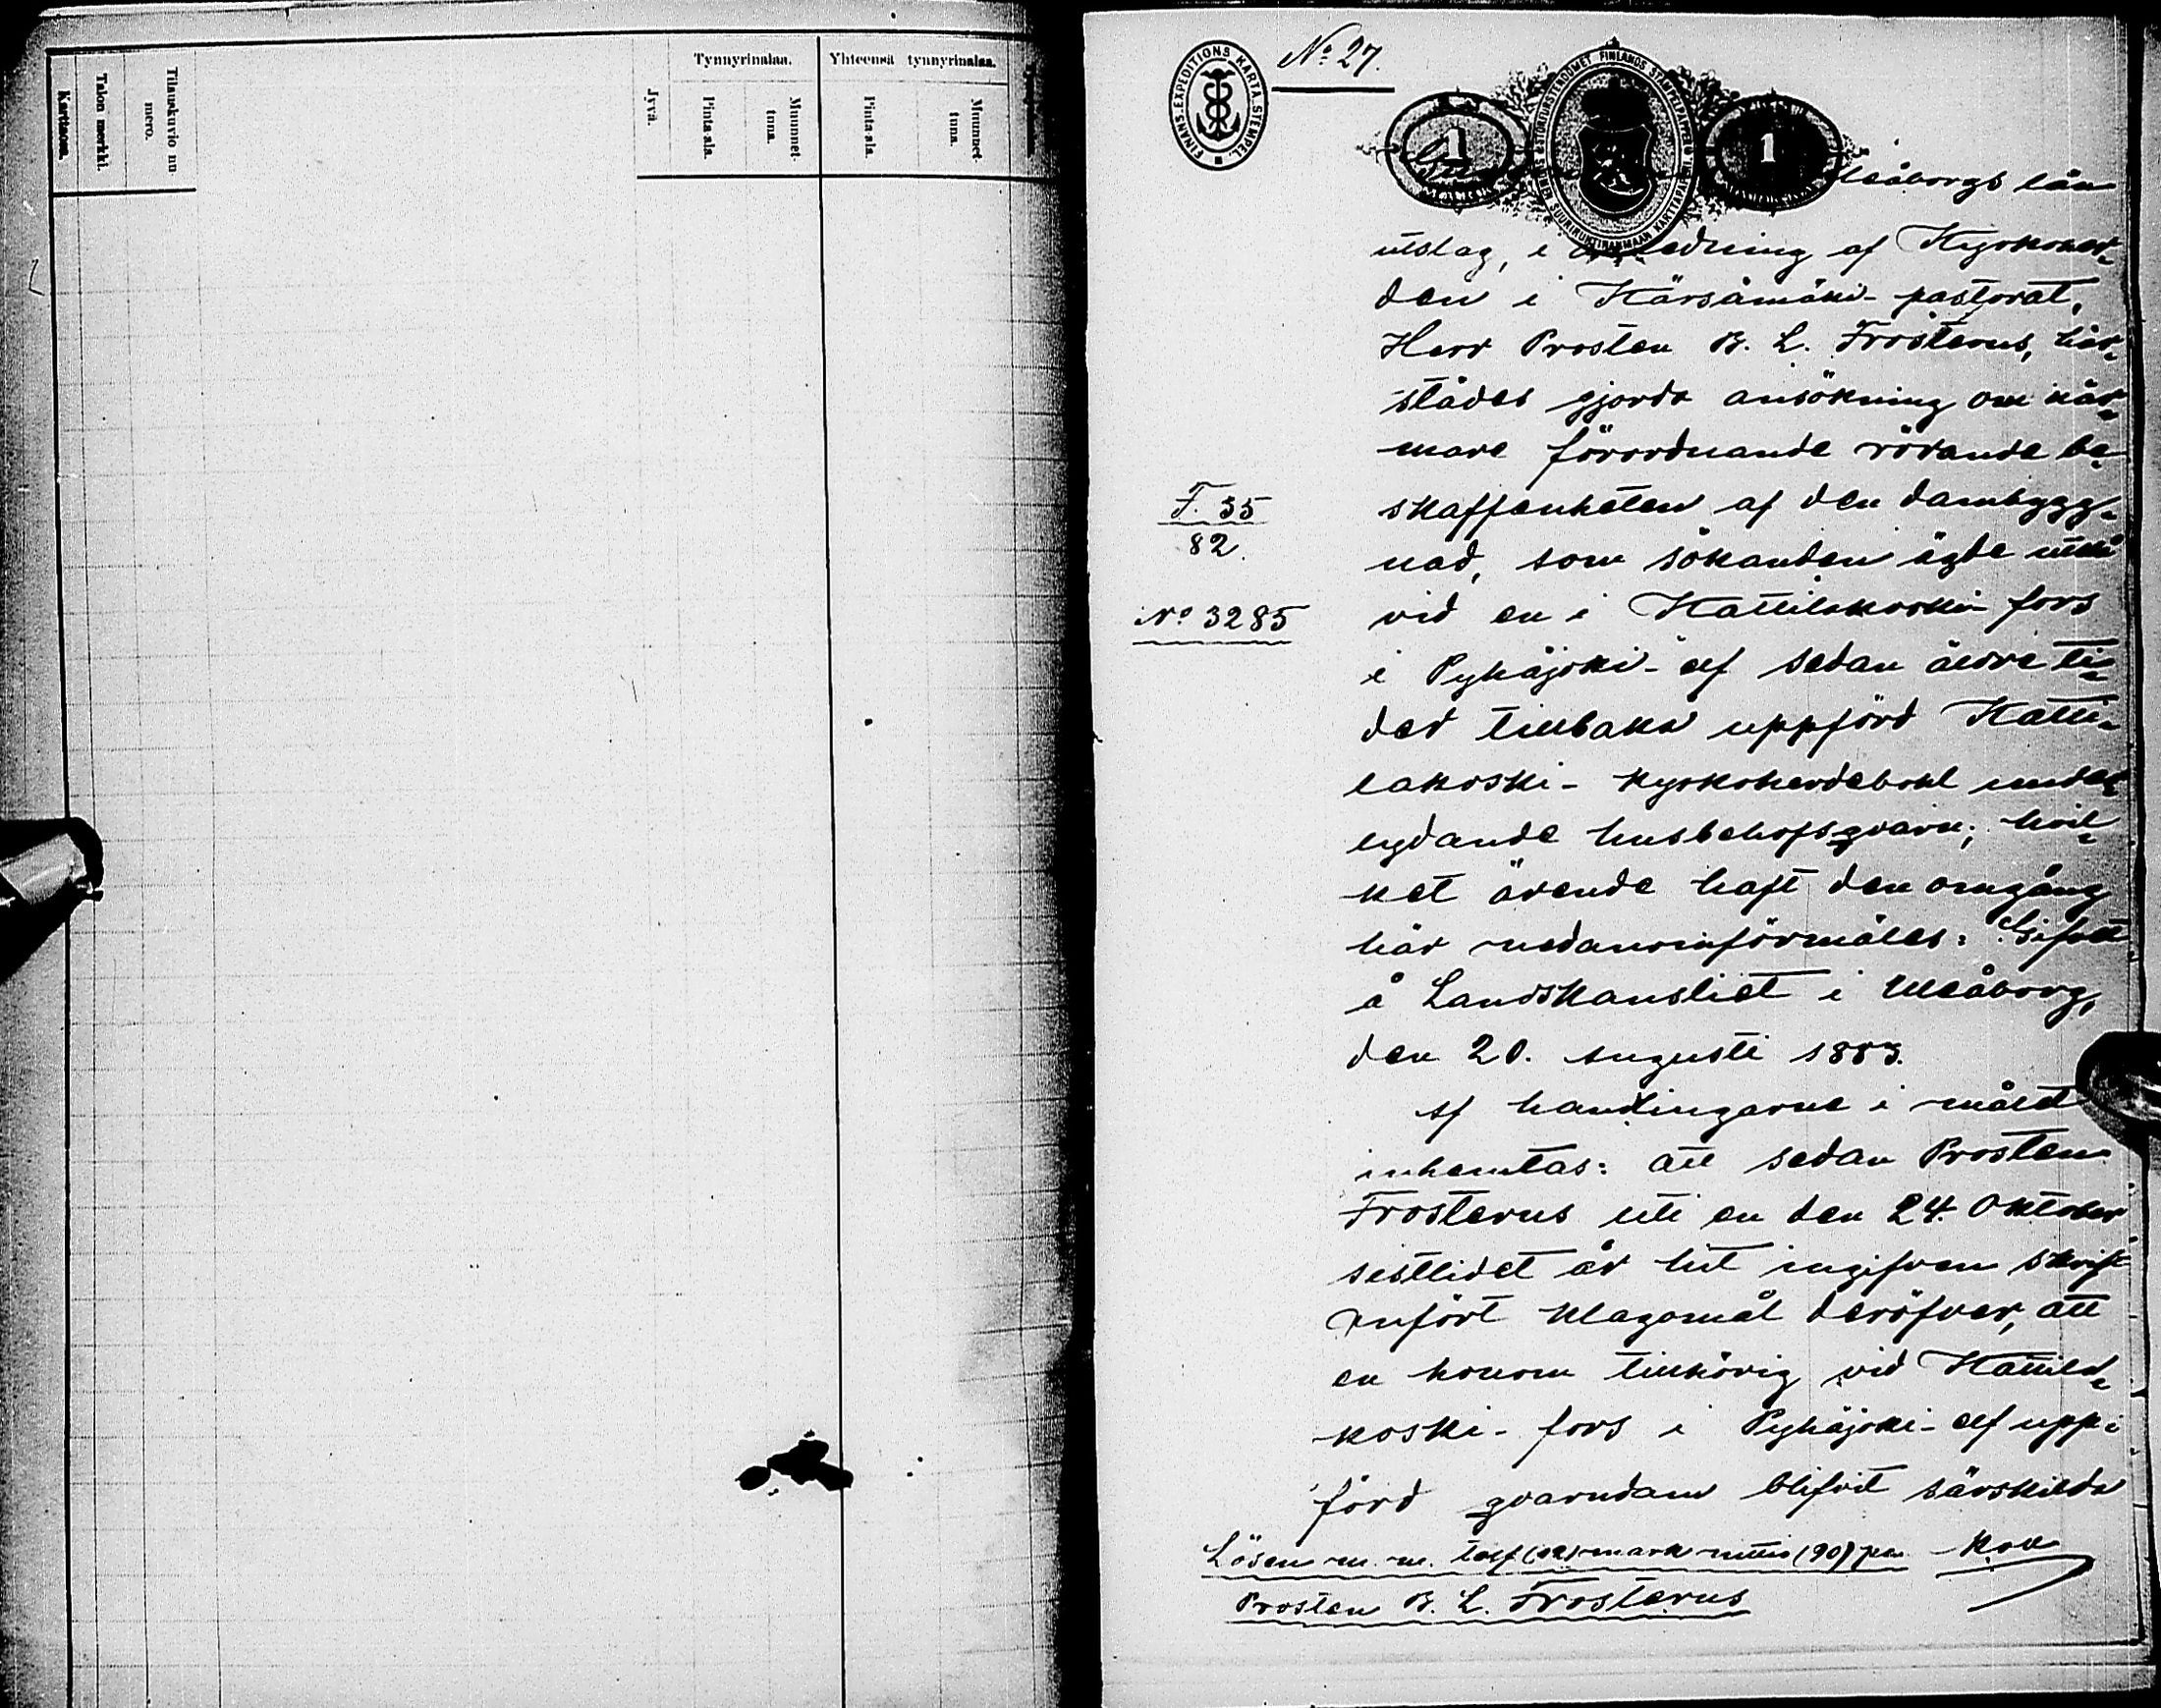 Karttaosa.
Talon merkki.
Tilauskuvio nu
mero.
Jyvä.
Tynnyrinalaa.
Pinta-ala.
Muunnet
tuna.
Yhteensä tynnyrinalaa.
Pinta-ala.
Muunnet
tuna.
FINANS. EXPEDITIONS KARTA STEMPEL.
No 27.
STORFURSTENDÖMET FINLANDS STÄMPELPAPPER
SUOMEN SUURIRUHTINANMAAN KARTTAPAPERI
1
1
Uleåborgs län
utslag, i anledning af Kyrkoher-
den i Kärsämäki-pastorat,
Herr Prosten B. L. Frosterus, här-
städes gjorda ansökning om när-
mare förordnande rörande be-
skaffenheten af den dambygg-
nad, som sökanden ägde
vid en i Hattilakoski fors
i Pyhäjoki-elf sedan äldre ti-
der tillbaka uppförd Hatti-
lakoski-Kyrkoherdebohl under-
lydande husbehofsqvarn; hvil-
ket ärende haft den omgång
här nedanoinförmäles: Gifvet
å Landskansliet i Uleåborg,
den 20. Augusti 1883.
Af handlingarne i målet
inhemtas: att sedan Prosten
Frosterus uti en den 24. Oktober
sistlidet år hit ingifven skrift
anfört klagomål deröfver, att
en honom tillhörig vid Hattila-
koski-fors i Pyhäjoki-elf upp-
förd qvarndam blifvit särskilda
F. 35
82.
No 3285
Lösen m. m. tolf (12) mark nittio (90) pen.
Prosten B. L. Frosterus